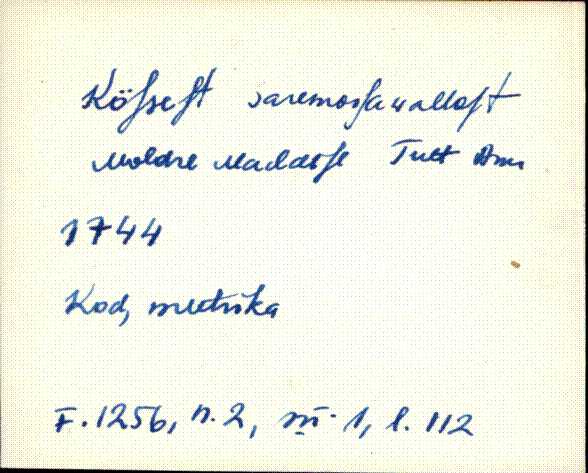 Köſseſt Saremoiſawalloſt
Moldre Maddiſse Tuet Ann
1744
Kod, metrika
F. 1256, n. 2, m. 1, l. 112